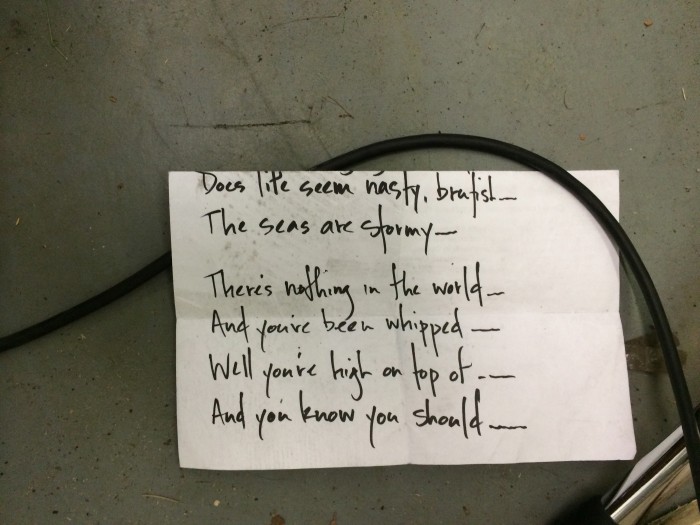 Does life seem nasty, brutish—
The seas are stormy—
There's nothing in the world—
And you've been whipped —
Well you're high on top of -—
And you know you should —